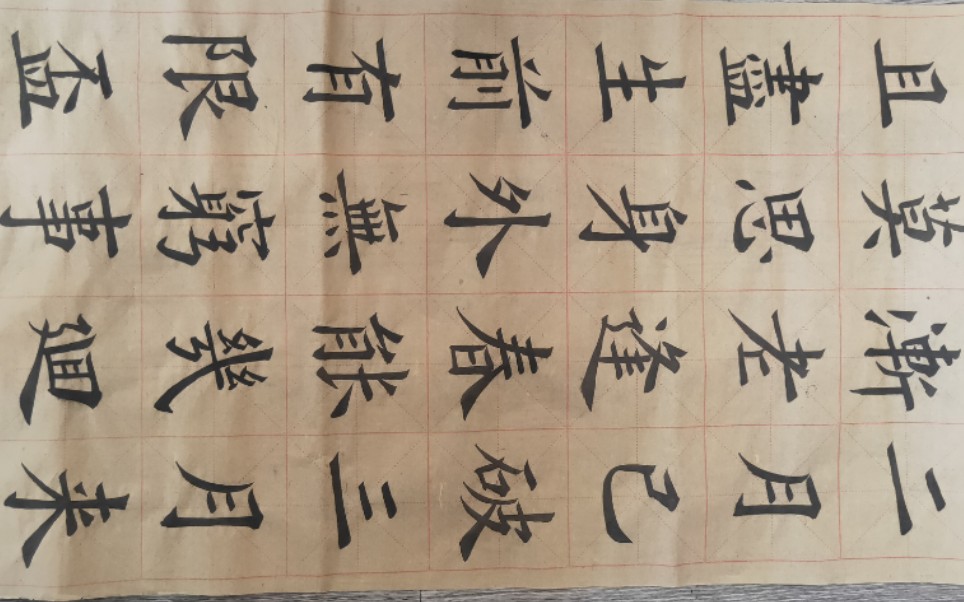 二月已破三月来
漸老逢春能幾廻
莫思身外無窮事
且盡生前有限盃